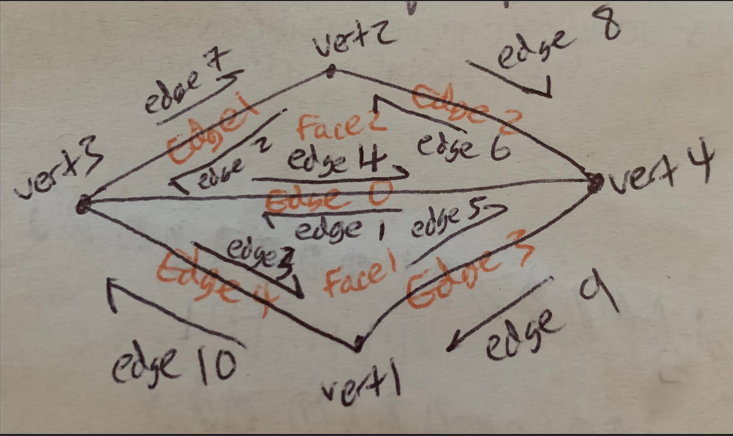 vert2
edge 8
edge 7
Edge 1
Face2
Edge 2
edge 2
edge 6
vert3
edge 4
vert 4
Edge 0
edge 1
edge 5
edge3
Edge 4
Face1
Edge 3
edge 9
edge 10
vert1